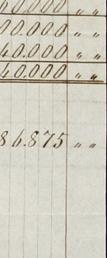 60.000 „ „
00.000 „ „
40.000 „ „
40.000 „ „
86.875 „ „